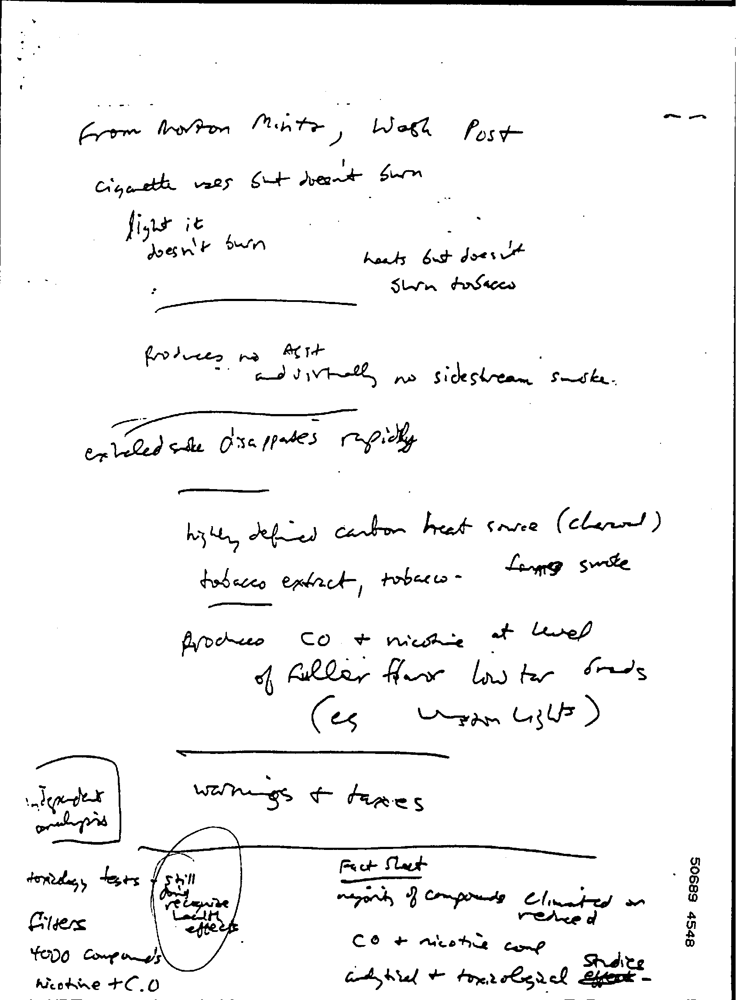 From Morton Mintz, Wash Post
cigarette uses but doesn't burn
light it
doesn't burn
heats but doesn't
burn tobacco
Produces no ASH
and virtually no sidestream smoke.
exhaled smoke disappates rapidly
highly defined carbon heat source (charcoal)
tobacco extract, tobacco - smoke
Produces CO + nicotine at level
of fuller flavor low tar brands
(eg Lights)
warnings + taxes
independent
analysis
toxicology tests - still
doing
recognize
health
effects
filters
4000 compounds
nicotine + C.O
Fact Sheet
majority of compounds eliminated or
reduced
CO + nicotine comp
analytical + toxicological studies -
50689 4548